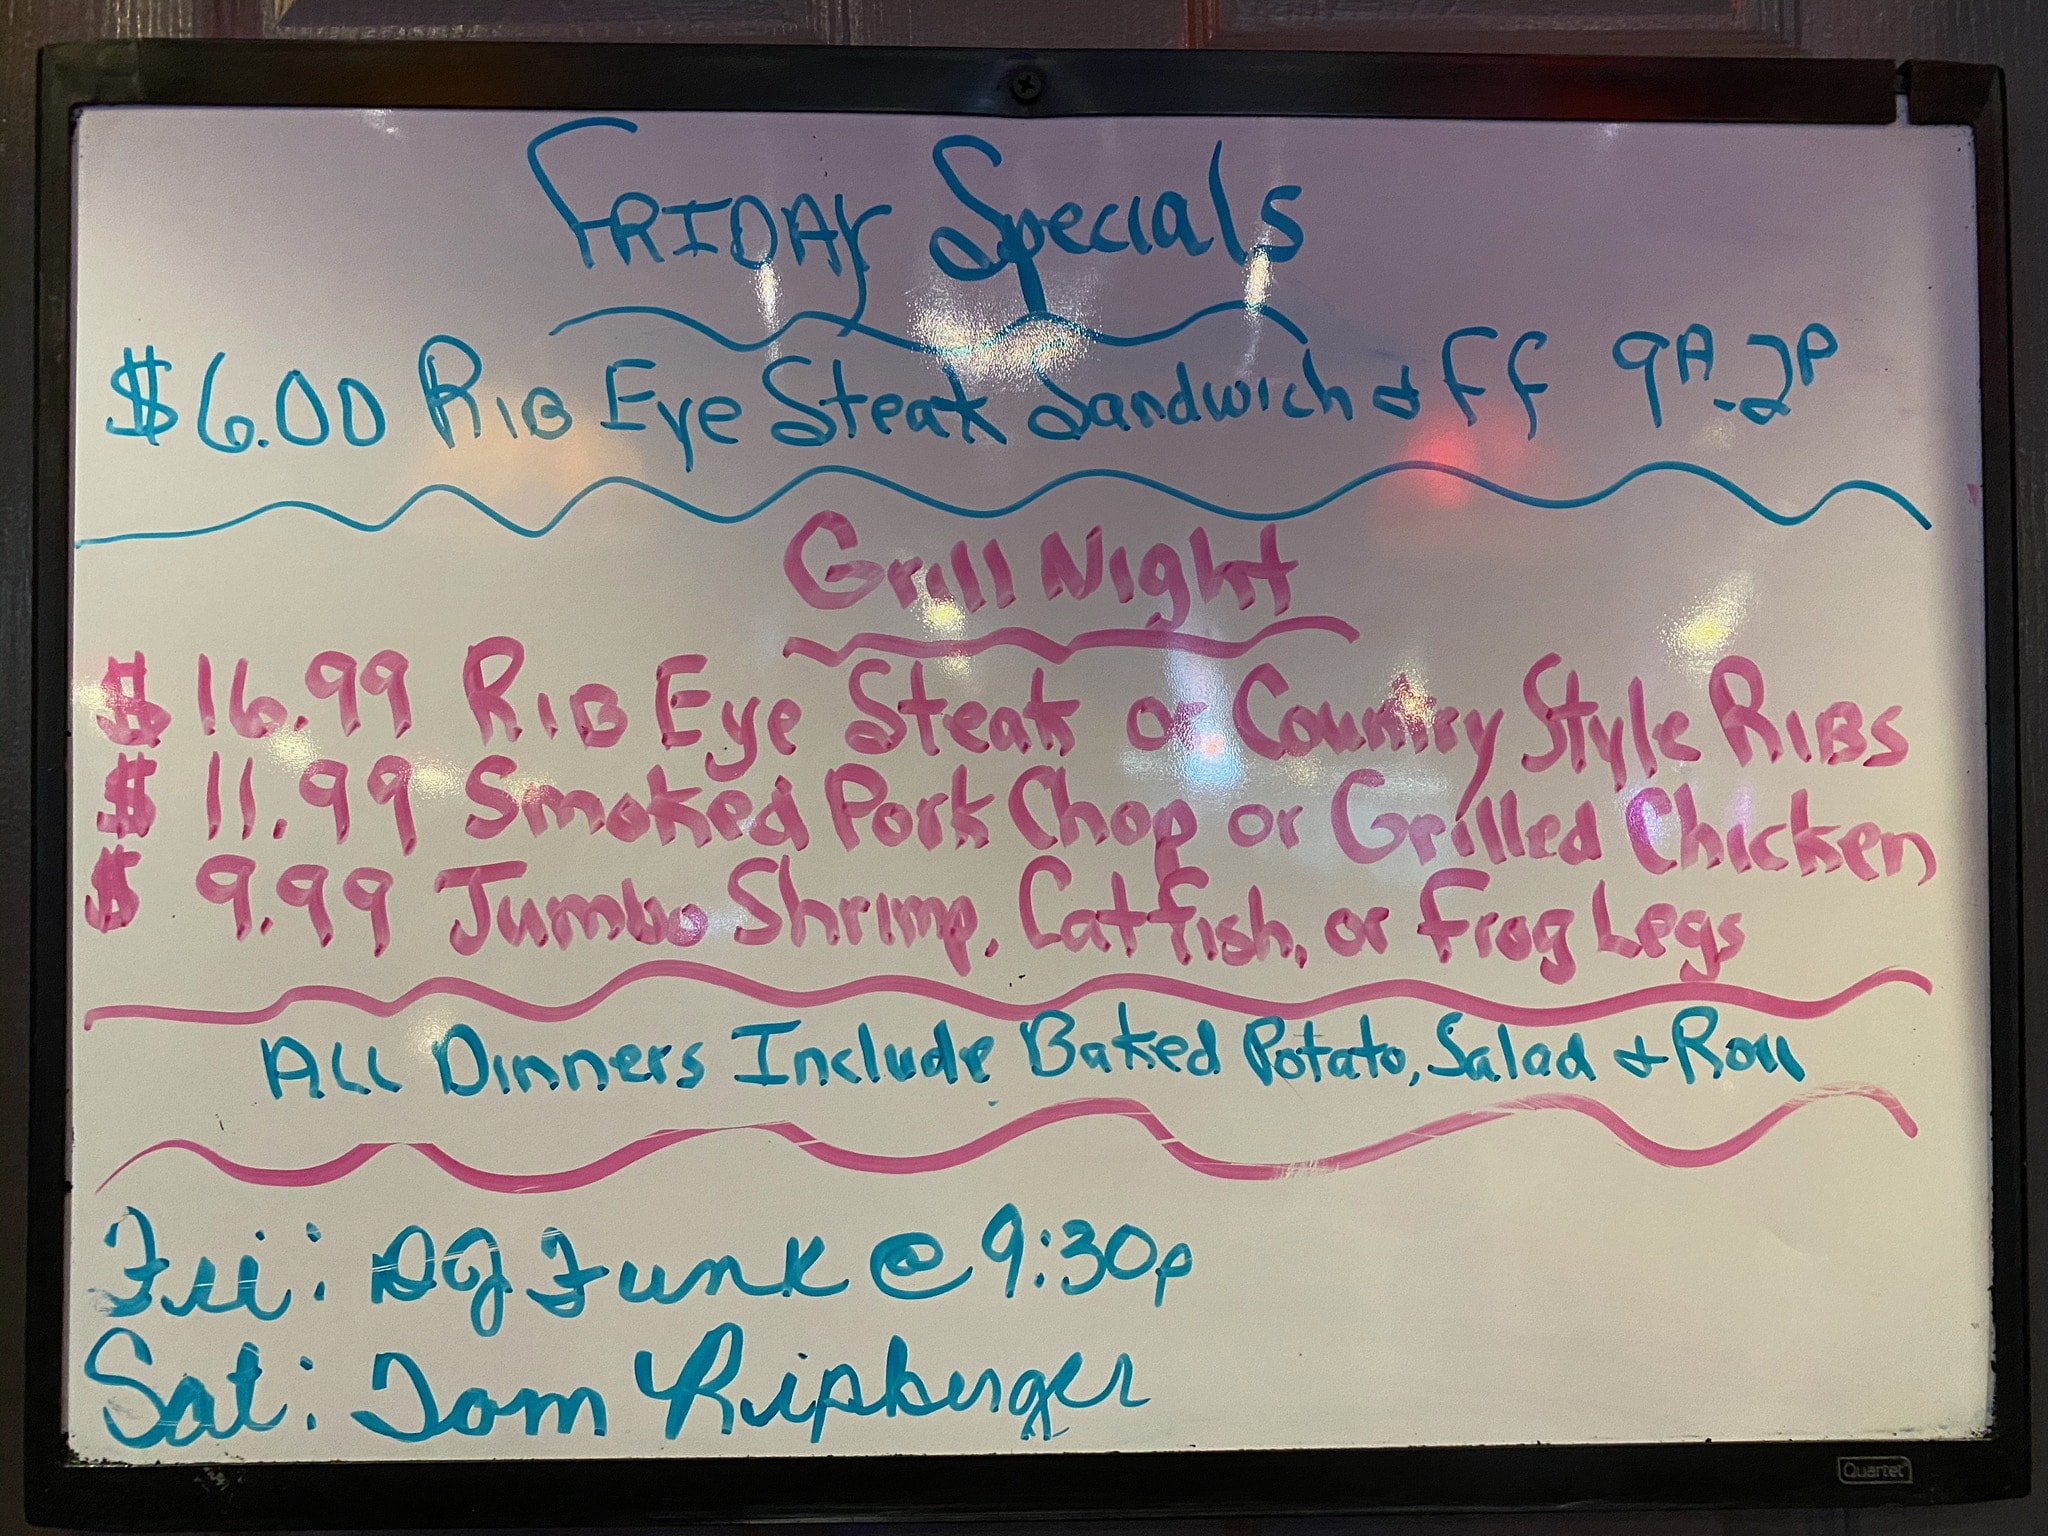 FRIDAY Specials
$6.00 RIB Eye Steak Sandwich & FF 9A-2P
Grill Night
$ 16.99 RIB Eye Steak or Country Style RIBS
$ 11.99 Smoked Pork Chop or Grilled Chicken
$ 9.99 Jumbo Shrimp, Catfish, or Frog Legs
ALL Dinners Include Baked Potato, Salad & Roll
Fri: DJ Funk @ 9:30p
Sat: Tom Ripberger
Quartet